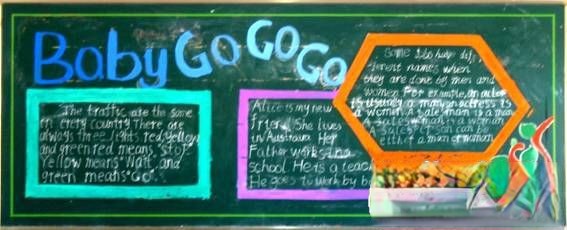 Baby Go Go Go
The traffic are the same
in every country there are
always three lights red, yellow
and green red means "stop"
Yellow means "Wait" and
green means "Go".
Alice is my new
friend She lives
in Australia Her
Father works in a
school He is a teach
He goes to work by b
Some Jobs have dif
ferent names when
they are done by men and
women For example, an actor
is usually a man, an actress is
a woman A salesman is a man
A saleswoman is a woman
A salesperson can be
either a man or woman